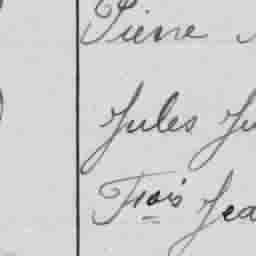 Pierre
Jules Ju
Frois Jea